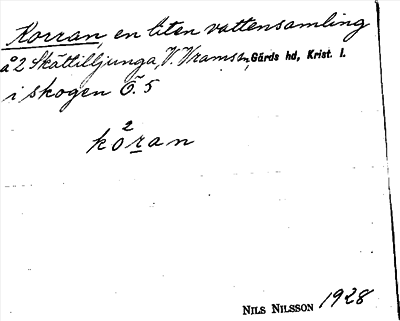 Korran, en liten vattensamling
å 2 Skättilljunga, V. Vramsn, Gärds hd, Krist. l.
i skogen Ö. 5
2
koran
NILS NILSSON 1928